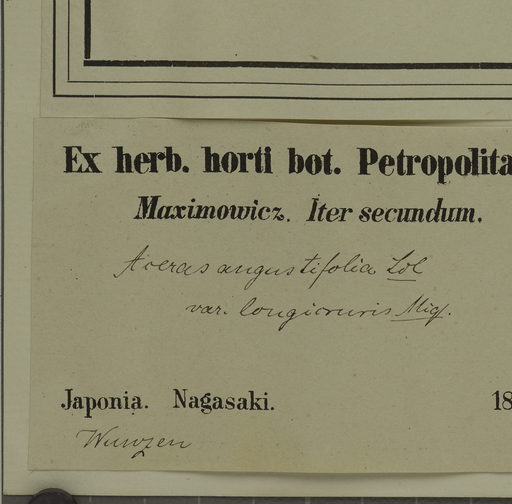 Ex herb. horti bot. Petropolita
Maximowicz. Iter secundum.
Aceras angustifolia Lol
var. longicruris Miq.
Japonia. Nagasaki. 18
Wurzen